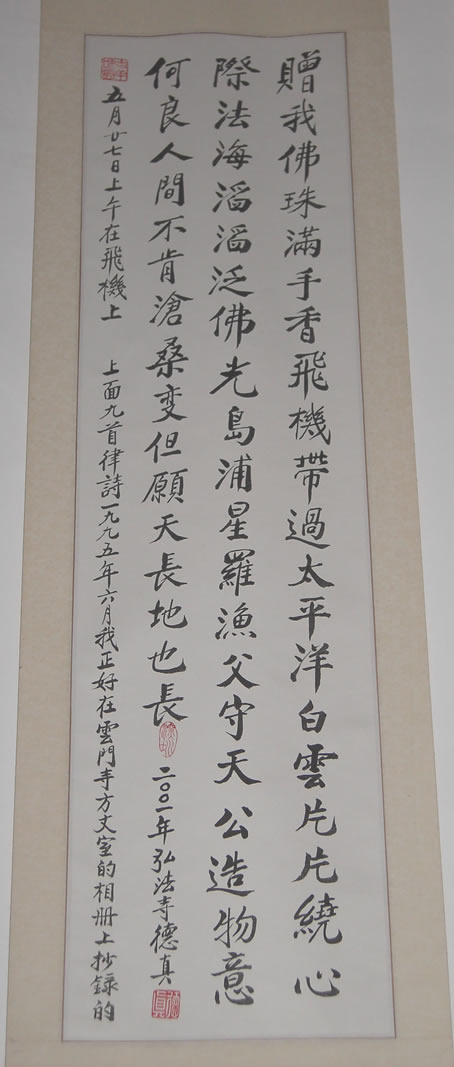 贈我佛珠滿手香飛機帶過太平洋白雲片片繞心
際法海滔滔泛佛光島浦星羅漁父守天公造物意
何良人間不肯滄桑变但願天長地也長
二〇〇一年弘法寺德真
五月廿七日上午在飛機上
上面九首律詩一九九五年六月我正好在雲門寺方丈室的相册上抄錄的